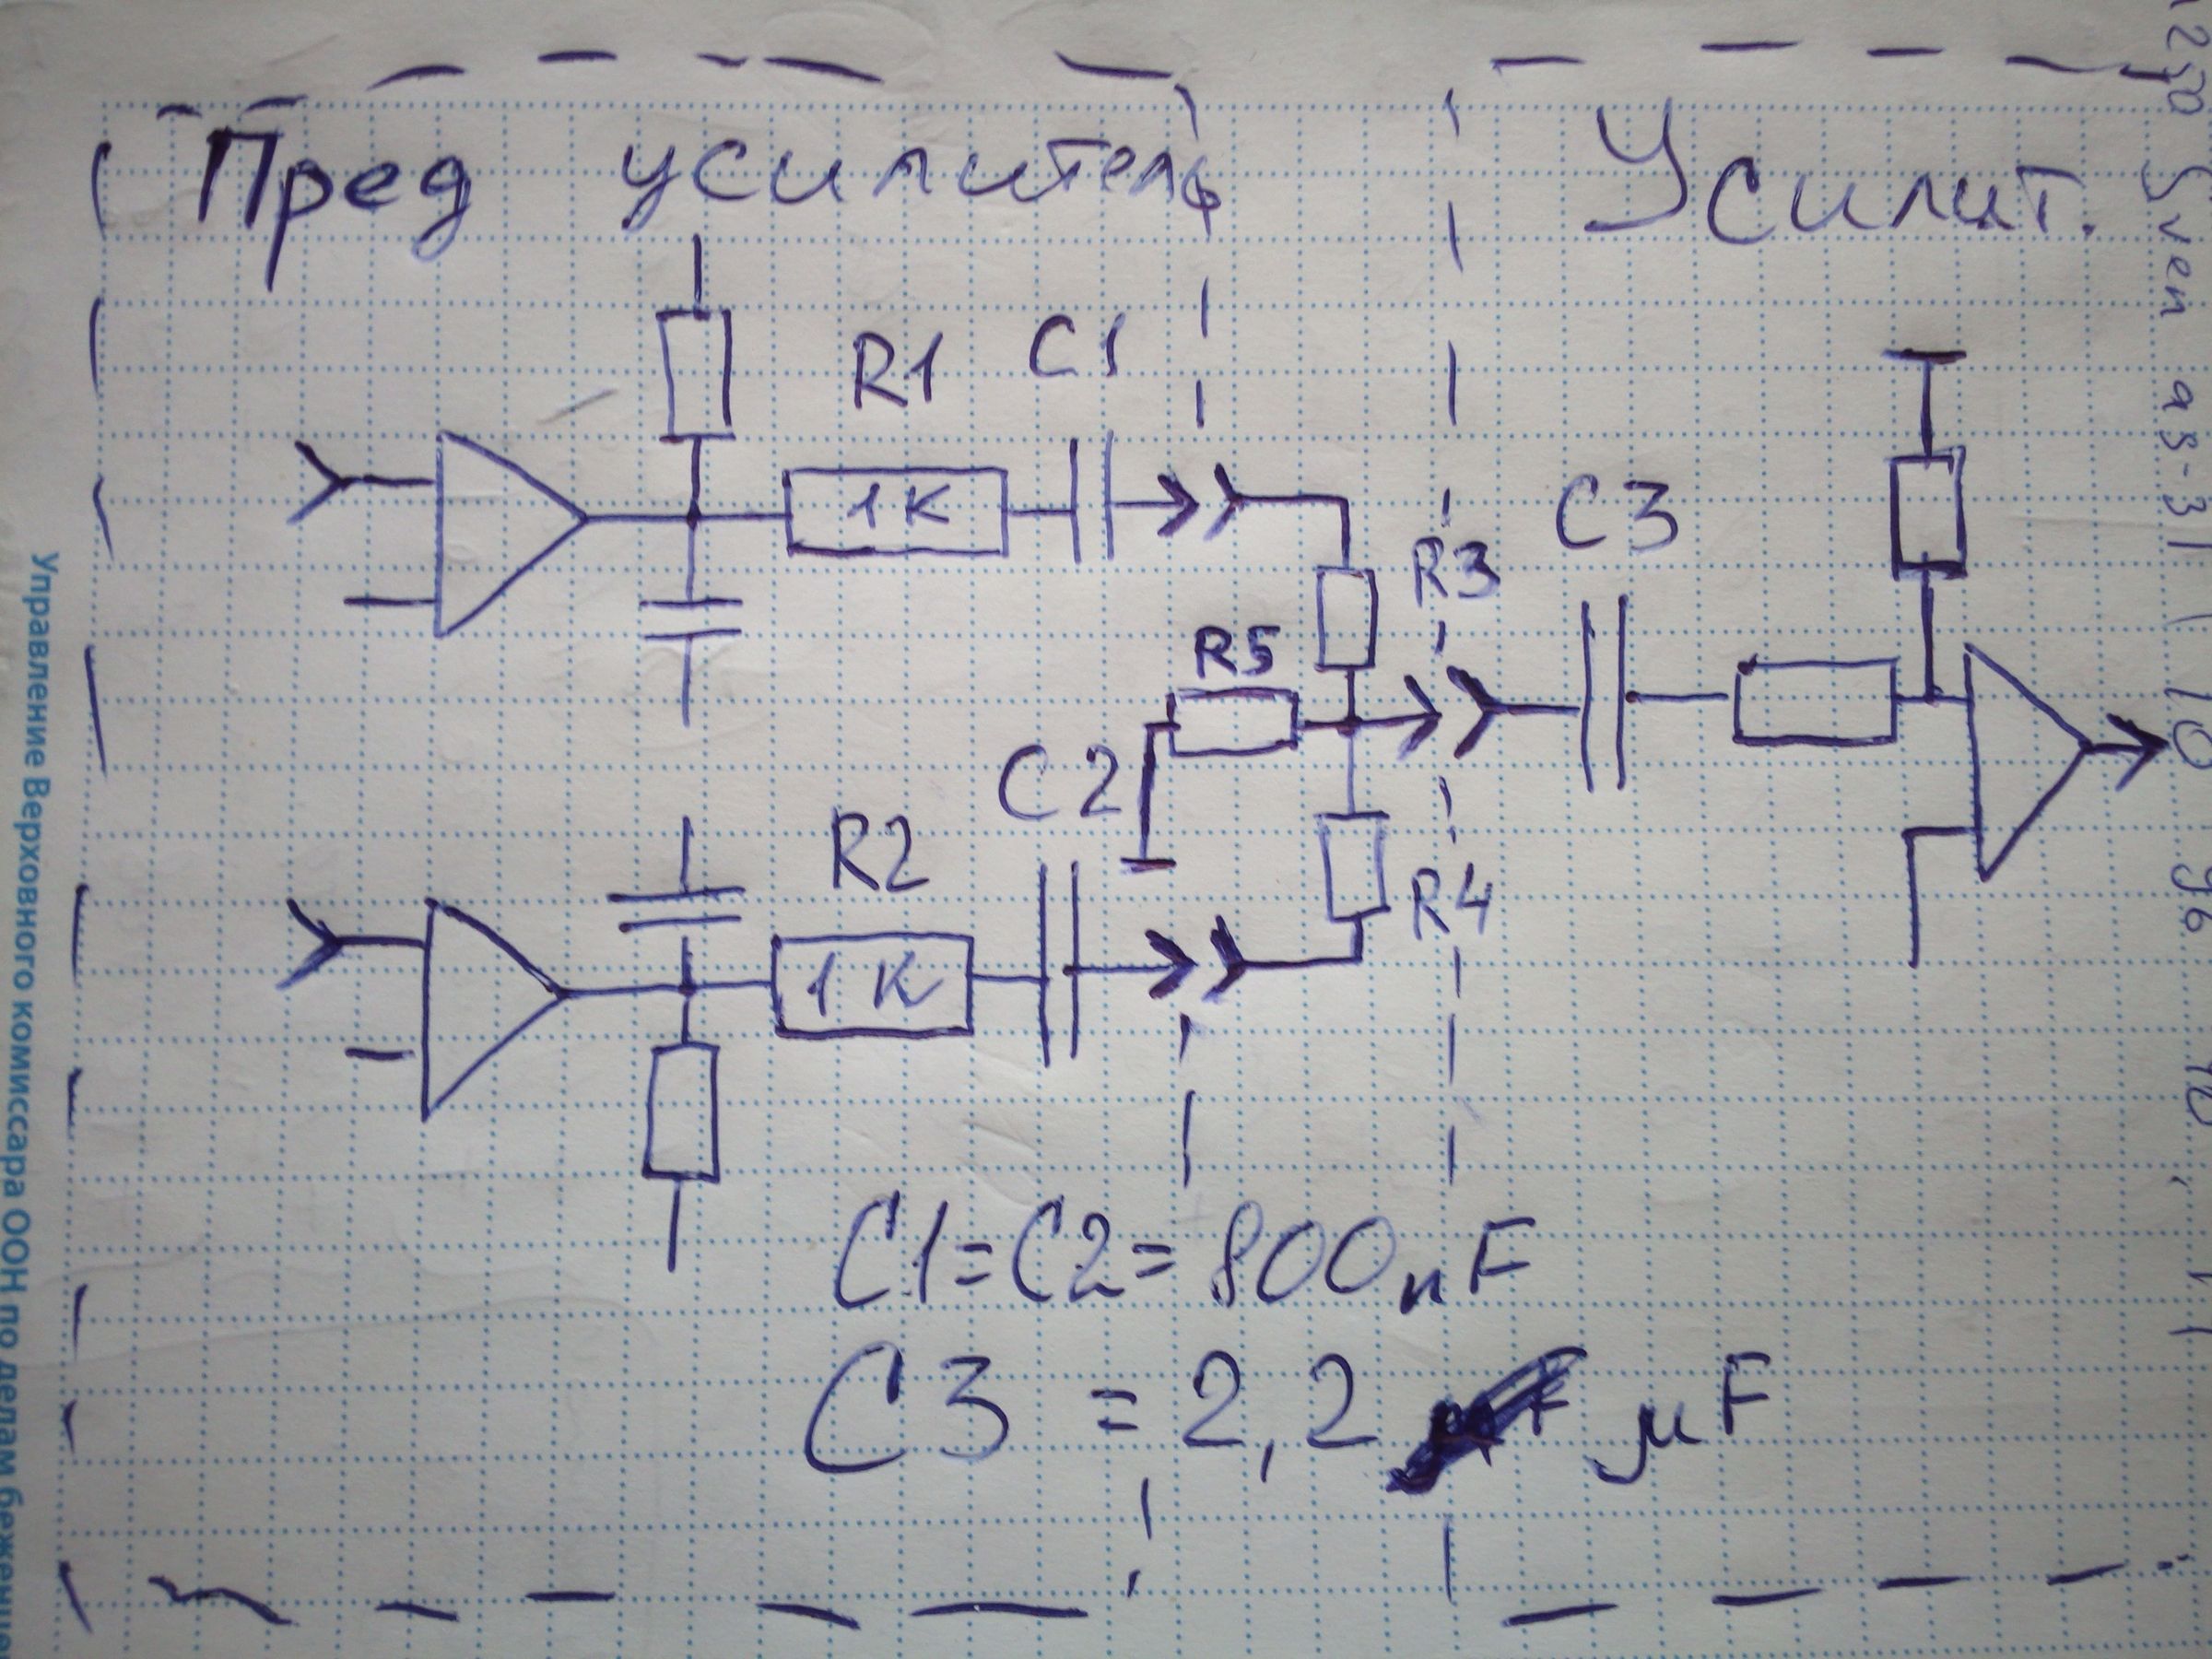 Пред усилитель
Усилит.
R1
C1
1K
R3
C3
R5
C2
R2
R4
1K
C1=C2=800nF
C3 = 2,2 μF
Управление Верховного комиссара ООН по делам
Sven